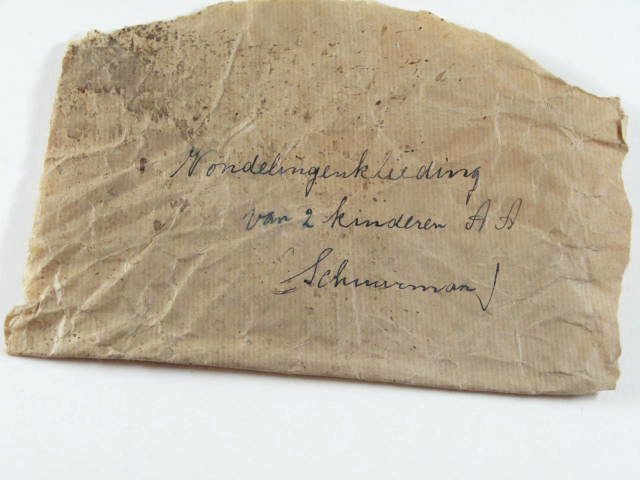 Vondelingenkleeding
van 2 kinderen A A
(Schuurman)